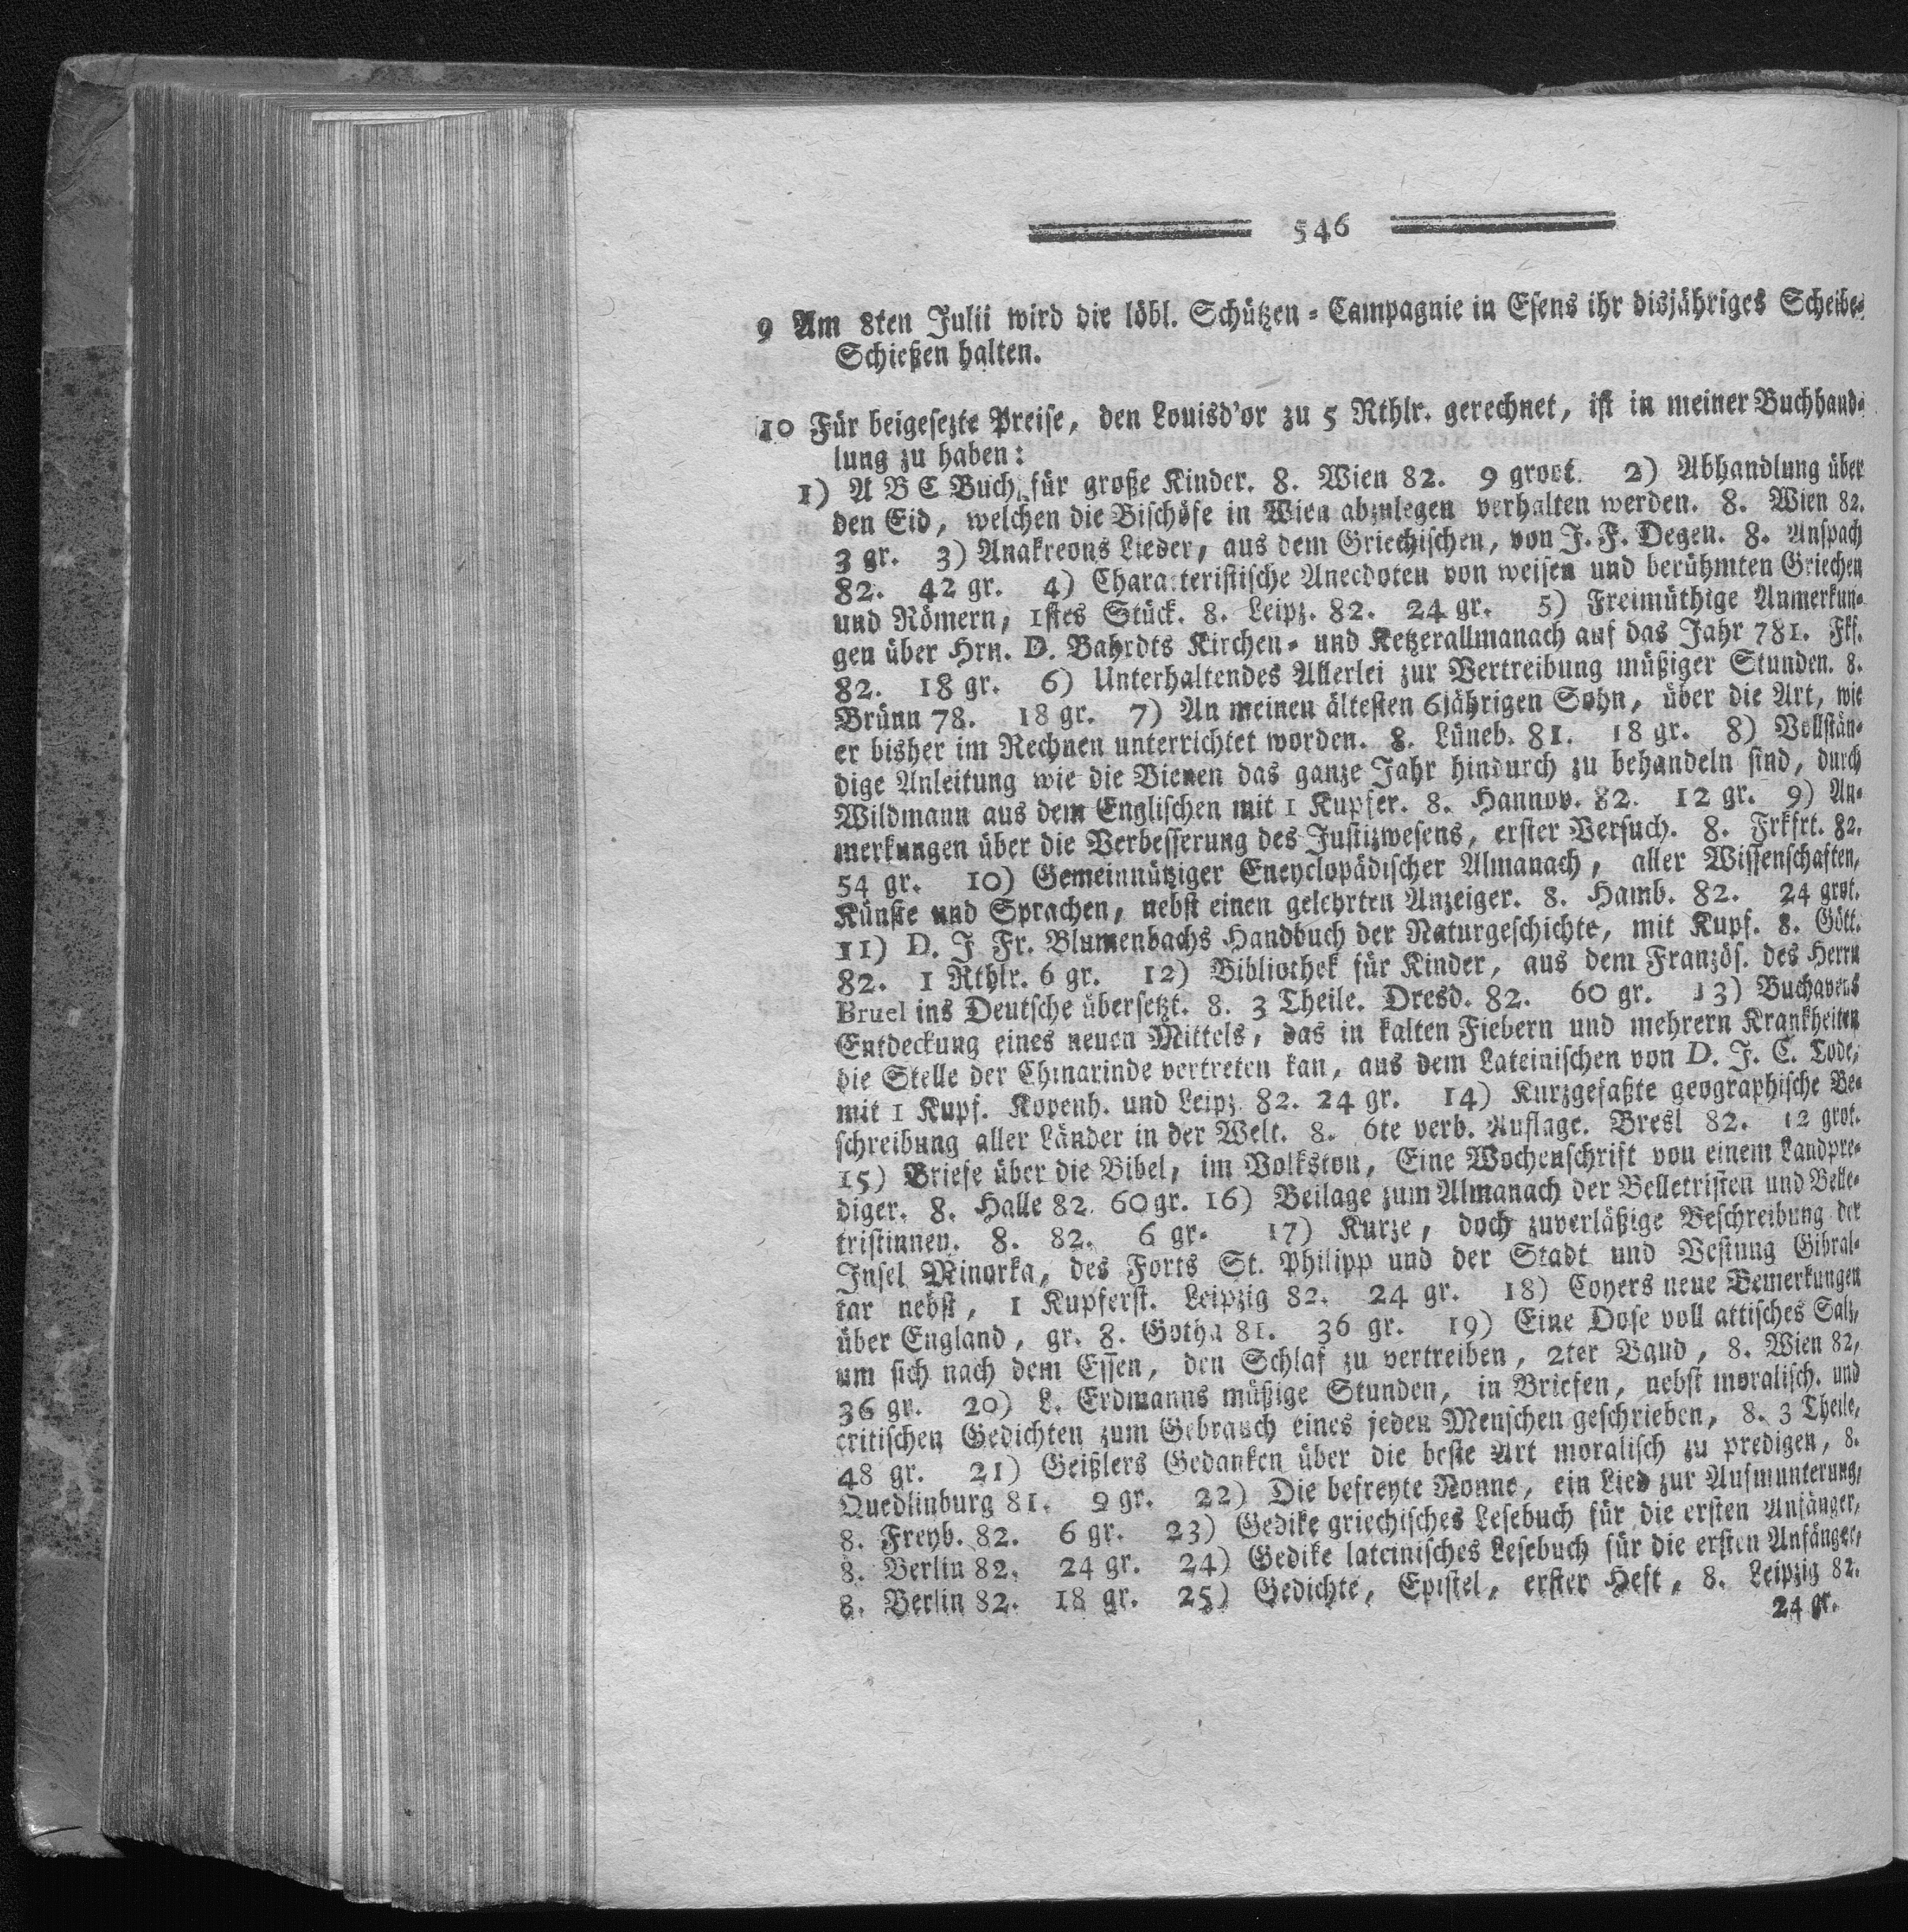 546
9 Am 8ten Julii wird die löbl. Schützen-Campagnie in Esens ihr disjähriges Scheibe-
Schießen halten.
10 Für beigesezte Preise, den Louisd'or zu 5 Rthlr. gerechnet, ist in meiner Buchhand-
lung zu haben:
1) A B C Buch für große Kinder. 8. Wien 82. 9 groot. 2) Abhandlung über
den Eid, welchen die Bischöfe in Wien abzulegen verhalten werden. 8. Wien 82.
3 gr. 3) Anakreons Lieder, aus dem Griechischen, von J. F. Degen. 8. Anspach
82. 42 gr. 4) Characteristische Anecdoten von weisen und berühmten Griechen
und Römern, 1stes Stück. 8. Leipz. 82. 24 gr. 5) Freimüthige Anmerkun-
gen über Hrn. D. Bahrdts Kirchen- und Ketzerallmanach auf das Jahr 781. Fkf.
82. 18 gr. 6) Unterhaltendes Allerlei zur Vertreibung müßiger Stunden. 8.
Brünn 78. 18 gr. 7) An meinen ältesten 6jährigen Sohn, über die Art, wie
er bisher im Rechnen unterrichtet worden. 8. Lüneb. 81. 18 gr. 8) Vollstän-
dige Anleitung wie die Bienen das ganze Jahr hindurch zu behandeln sind, durch
Wildmann aus dem Englischen mit 1 Kupfer. 8. Hannov. 82. 12 gr. 9) An-
merkungen über die Verbesserung des Justizwesens, erster Versuch. 8. Frkfrt. 82.
54 gr. 10) Gemeinnütziger Encyclopädischer Almanach, aller Wissenschaften,
Künste und Sprachen, nebst einen gelehrten Anzeiger. 8. Hamb. 82. 24 grot.
11) D. J Fr. Blumenbachs Handbuch der Naturgeschichte, mit Kupf. 8. Gött.
82. 1 Rthlr. 6 gr. 12) Bibliothek für Kinder, aus dem Französ. des Herrn
Bruel ins Deutsche übersetzt. 8. 3 Theile. Dresd. 82. 60 gr. 13) Buchavens
Entdeckung eines neuen Mittels, das in kalten Fiebern und mehrern Krankheiten
die Stelle der Chinarinde vertreten kan, aus dem Lateinischen von D. J. C. Tode,
mit 1 Kupf. Kopenh. und Leipz. 82. 24 gr. 14) Kurzgefaßte geographische Be-
schreibung aller Länder in der Welt. 8. 6te verb. Auflage. Bresl 82. 12 grot.
15) Briefe über die Bibel, im Volkston, Eine Wochenschrift von einem Landpre-
diger. 8. Halle 82. 60gr. 16) Beilage zum Almanach der Belletristen und Belle-
tristinnen. 8. 82. 6 gr. 17) Kurze, doch zuverläßige Beschreibung der
Insel Minorka, des Forts St. Philipp und der Stadt und Vestung Gibral-
tar nebst, 1 Kupferst. Leipzig 82. 24 gr. 18) Coyers neue Bemerkungen
über England, gr. 8. Gotha 81. 36 gr. 19) Eine Dose voll attisches Salz,
um sich nach dem Essen, den Schlaf zu vertreiben, 2ter Band, 8. Wien 82,
36 gr. 20) L. Erdmanns müßige Stunden, in Briefen, nebst moralisch. und
critischen Gedichten zum Gebrauch eines jeden Menschen geschrieben, 8. 3 Theile,
48 gr. 21) Geißlers Gedanken über die beste Art moralisch zu predigen, 8.
Quedlinburg 81. 9 gr. 22) Die befreyte Nonne, ein Lied zur Aufmunterung,
8. Freyb. 82. 6 gr. 23) Gedike griechisches Lesebuch für die ersten Anfänger,
8. Berlin 82. 24 gr. 24) Gedike lateinisches Lesebuch für die ersten Anfänger,
8. Berlin 82. 18 gr. 25) Gedichte, Epistel, erster Heft, 8. Leipzig 82.
24 gr.